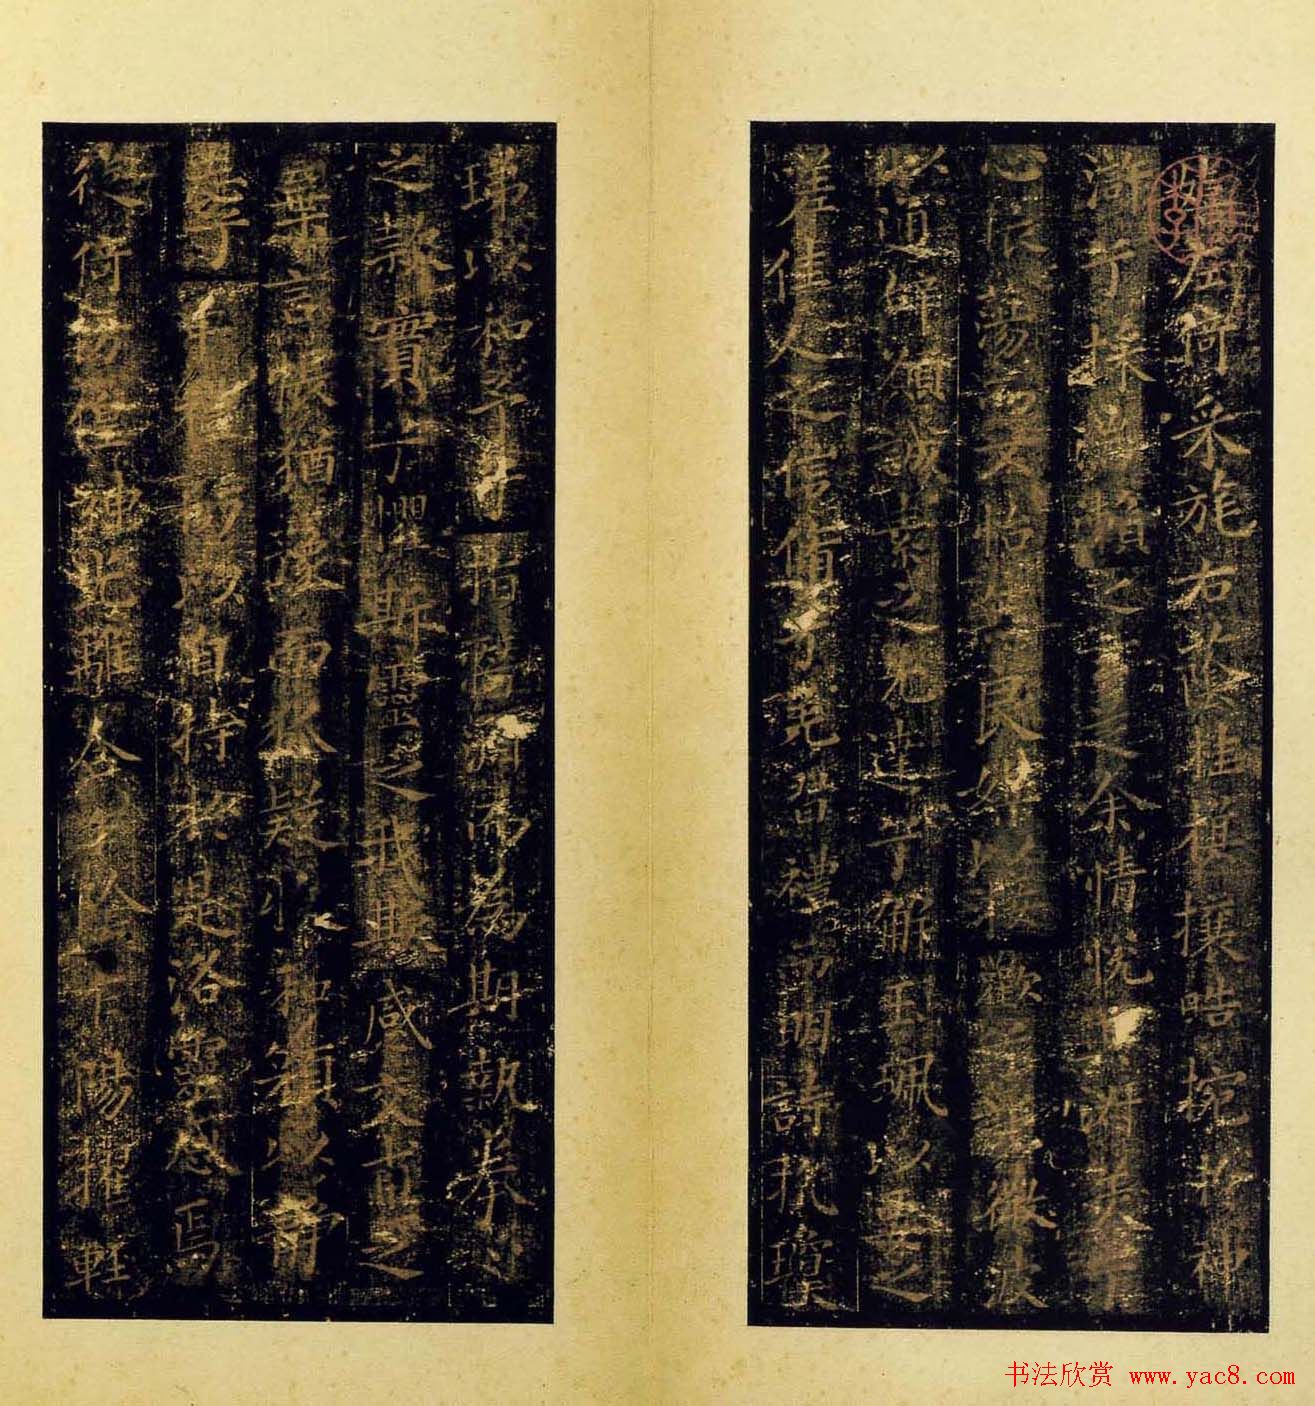 左倚采旄右蔭桂旗攘皓捥於神
滸兮採湍瀨之玄芝余情悅其淑美兮
心振蕩而不怡無良媒以接歡兮託微波
以通辭願誠素之先達兮解玉珮以要之
嗟佳人之信脩兮羌習禮而明詩抗瓊
珶以和予兮指潛淵而為期執拳拳
之款實兮懼斯靈之我欺感交甫之
棄言悵猶豫而狐疑收和顏以靜
志兮申禮防以自持於是洛靈感焉
徙倚傍偟神光離合乍陰乍陽擢輕
书法欣赏 www.yac8.com